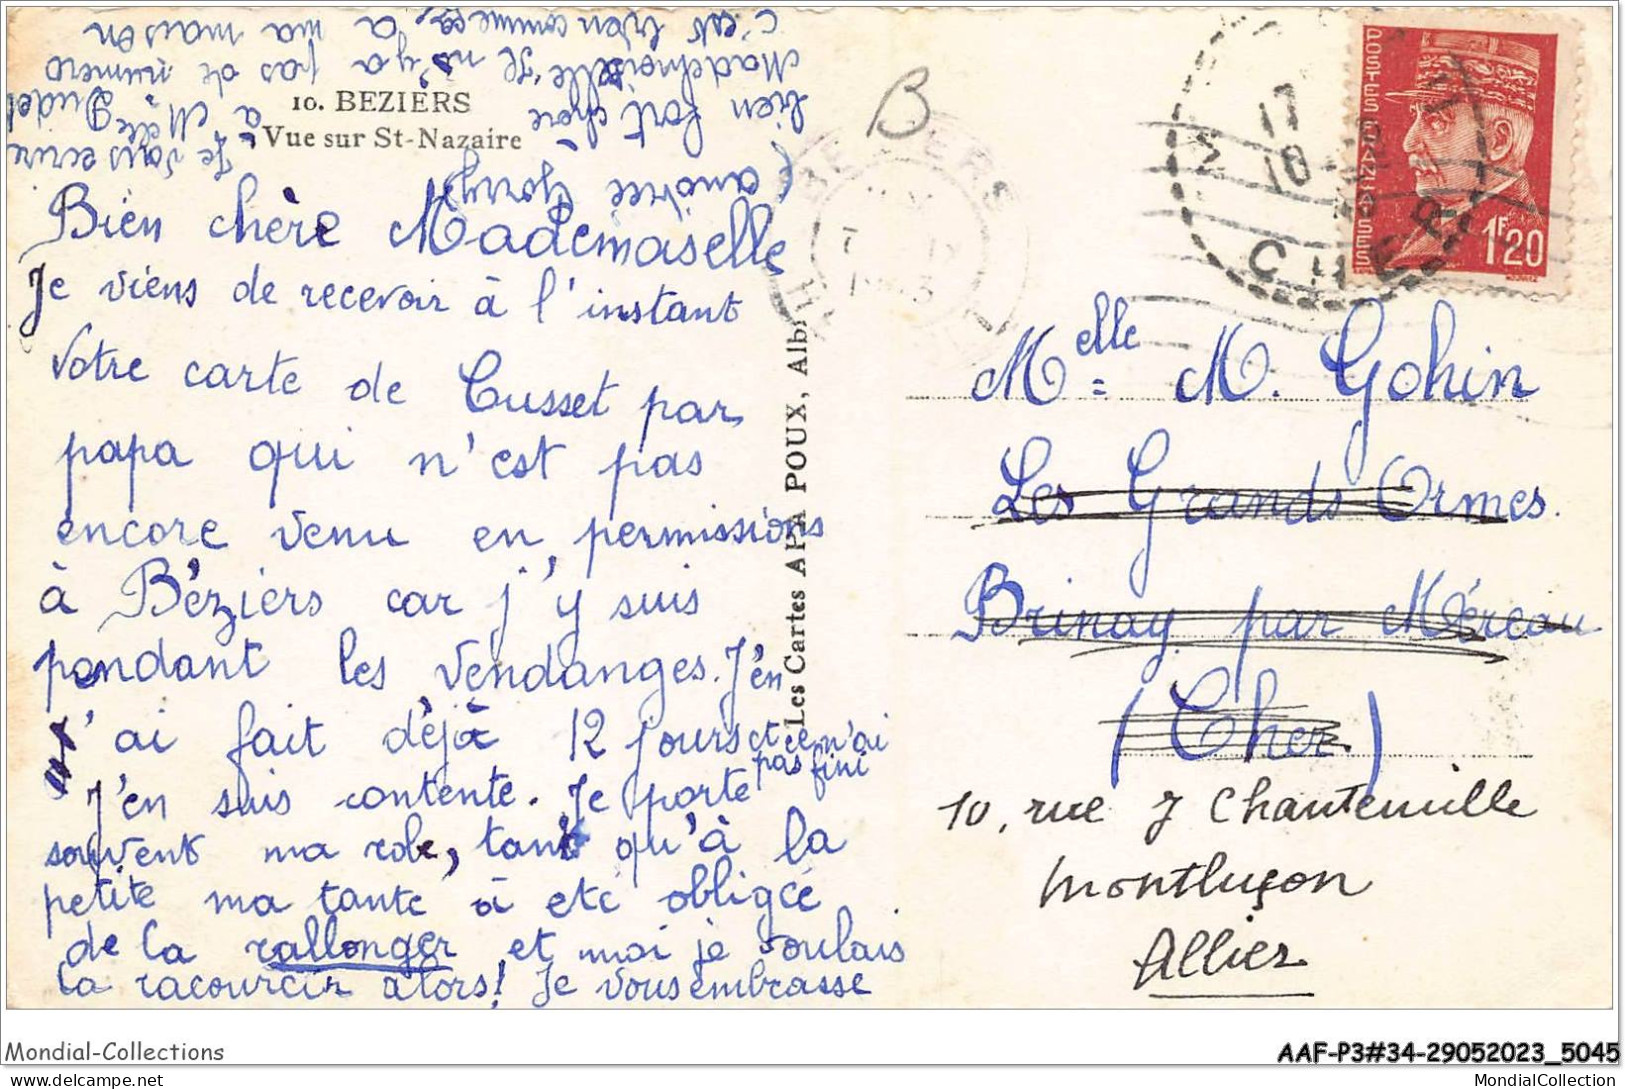 10. BEZIERS
Vue sur St-Nazaire
Bien chère Mademaselle
Je viens de recevoir à l'instant
votre carte de Cusset par
papa qui n'est pas
encore venu en permissions
à Béziers car j'y suis
pendant les vendanges. J'en
n'ai fait déjà 12 jours et ce n'ai
pas fini
J'en suis contente. Je porte
souvent ma robe, tant qu'à la
petite ma tante à eté obligée
de la rallonger et moi je voulais
la racourcir alors! Je vous embrasse
bien fort chère
Mademoiselle, Je n'y a pas de numéro
c'est bien commença à ma maison
Je vous ecrire
à Melle Gudel
Les Cartes APA POUX, Albi
B
17
10
CHER
POSTES FRANÇAISES
1F20
Melle = M. Gohin
Les Grands Ormes.
Brinay par Méreau
(Cher)
10, rue J Chantemille
Montluçon
Allier
Mondial-Collections
AAF-P3#34-29052023_5045
mondial-collection.delcampe.net
MondialCollection